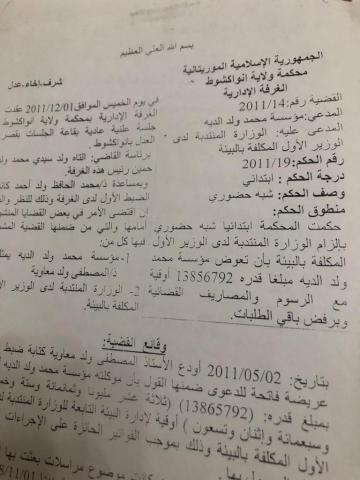 بسم الله العلي العظيم
الجمهورية الإسلامية الموريتانية
محكمة ولاية انواكشوط
الغرفة الإدارية
شرف-إخاء-عدل
القضية رقم:2011/14
المدعي:مؤسسة محمد ولد الديه
المدعى عليه: الوزارة المنتدبة لدى
الوزير الأول المكلفة بالبيئة
رقم الحكم:2011/19
درجة الحكم : ابتدائي
وصف الحكم: شبه حضوري
منطوق الحكم:
حكمت المحكمة ابتدائيا شبه حضوري
بإلزام الوزارة المنتدبة لدى الوزير الأول
المكلفة بالبيئة بأن تعوض مؤسسة محمد
ولد الديه مبلغا قدره 13856792 أوقية
مع الرسوم والمصاريف القضائية
وبرفض باقي الطلبات.
في يوم الخميس الموافق2011/12/01 عقدت
الغرفة الإدارية بمحكمة ولاية انواكشوط
جلسة علنية عادية بقاعة الجلسات بقصر
العدل بانواكشوط.
برئاسة القاضي: التاه ولد سيدي محمد ولد
حمين رئيس هذه الغرفة.
وبمساعدة ذ/محمد الحافظ ولد أحمد كاتب
الضبط الأول لدى الغرفة وذلك للنظر
إن اقتضى الأمر في بعض القضايا
أمامها والتي من ضمنها القضية
فيها كل من:
1-مؤسسة محمد ولد الديه
ذ/المصطفى ولد معاوية
2- الوزارة المنتدبة لدى الوزير
المكلفة بالبيئة.
وقائع القضية:
بتاريخ: 2011/05/02 أودع الأستاذ المصطفى ولد معاوية كتابة ضبط
عريضة فاتحة للدعوى ضمنها القول بأن موكلته مؤسسة محمد ولد الديه
بمبلغ قدره: (13865792) (ثلاثة عشر مليونا وثمانمائة وستة
وسبعمائة وإثنان وتسعون ) أوقية لإدارة البيئة التابعة للوزارة المنتدبة
الأول المكلفة بالبيئة وذلك بموجب الفواتير الحائزة على الإجراءات
موضوع مراسلات بعثت بها